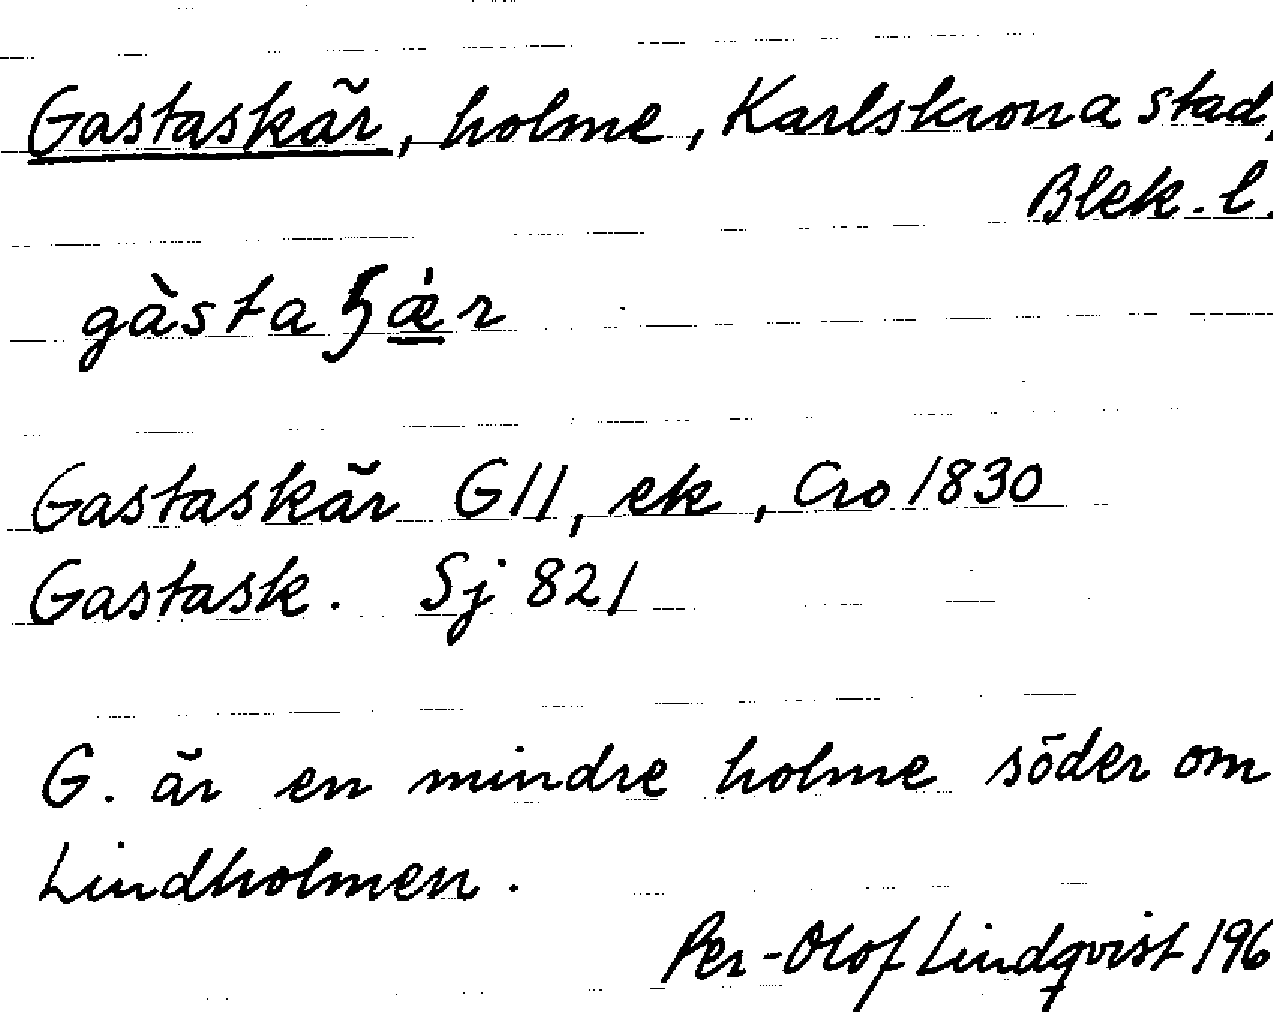 Gastaskär, holme, Karlskrona stad,
Blek. l.
Gastaskär G11, ek, Cro 1830
Gastask. Sj 821
G. är en mindre holme söder om
Lindholmen.
Per-Olof Lindqvist 196